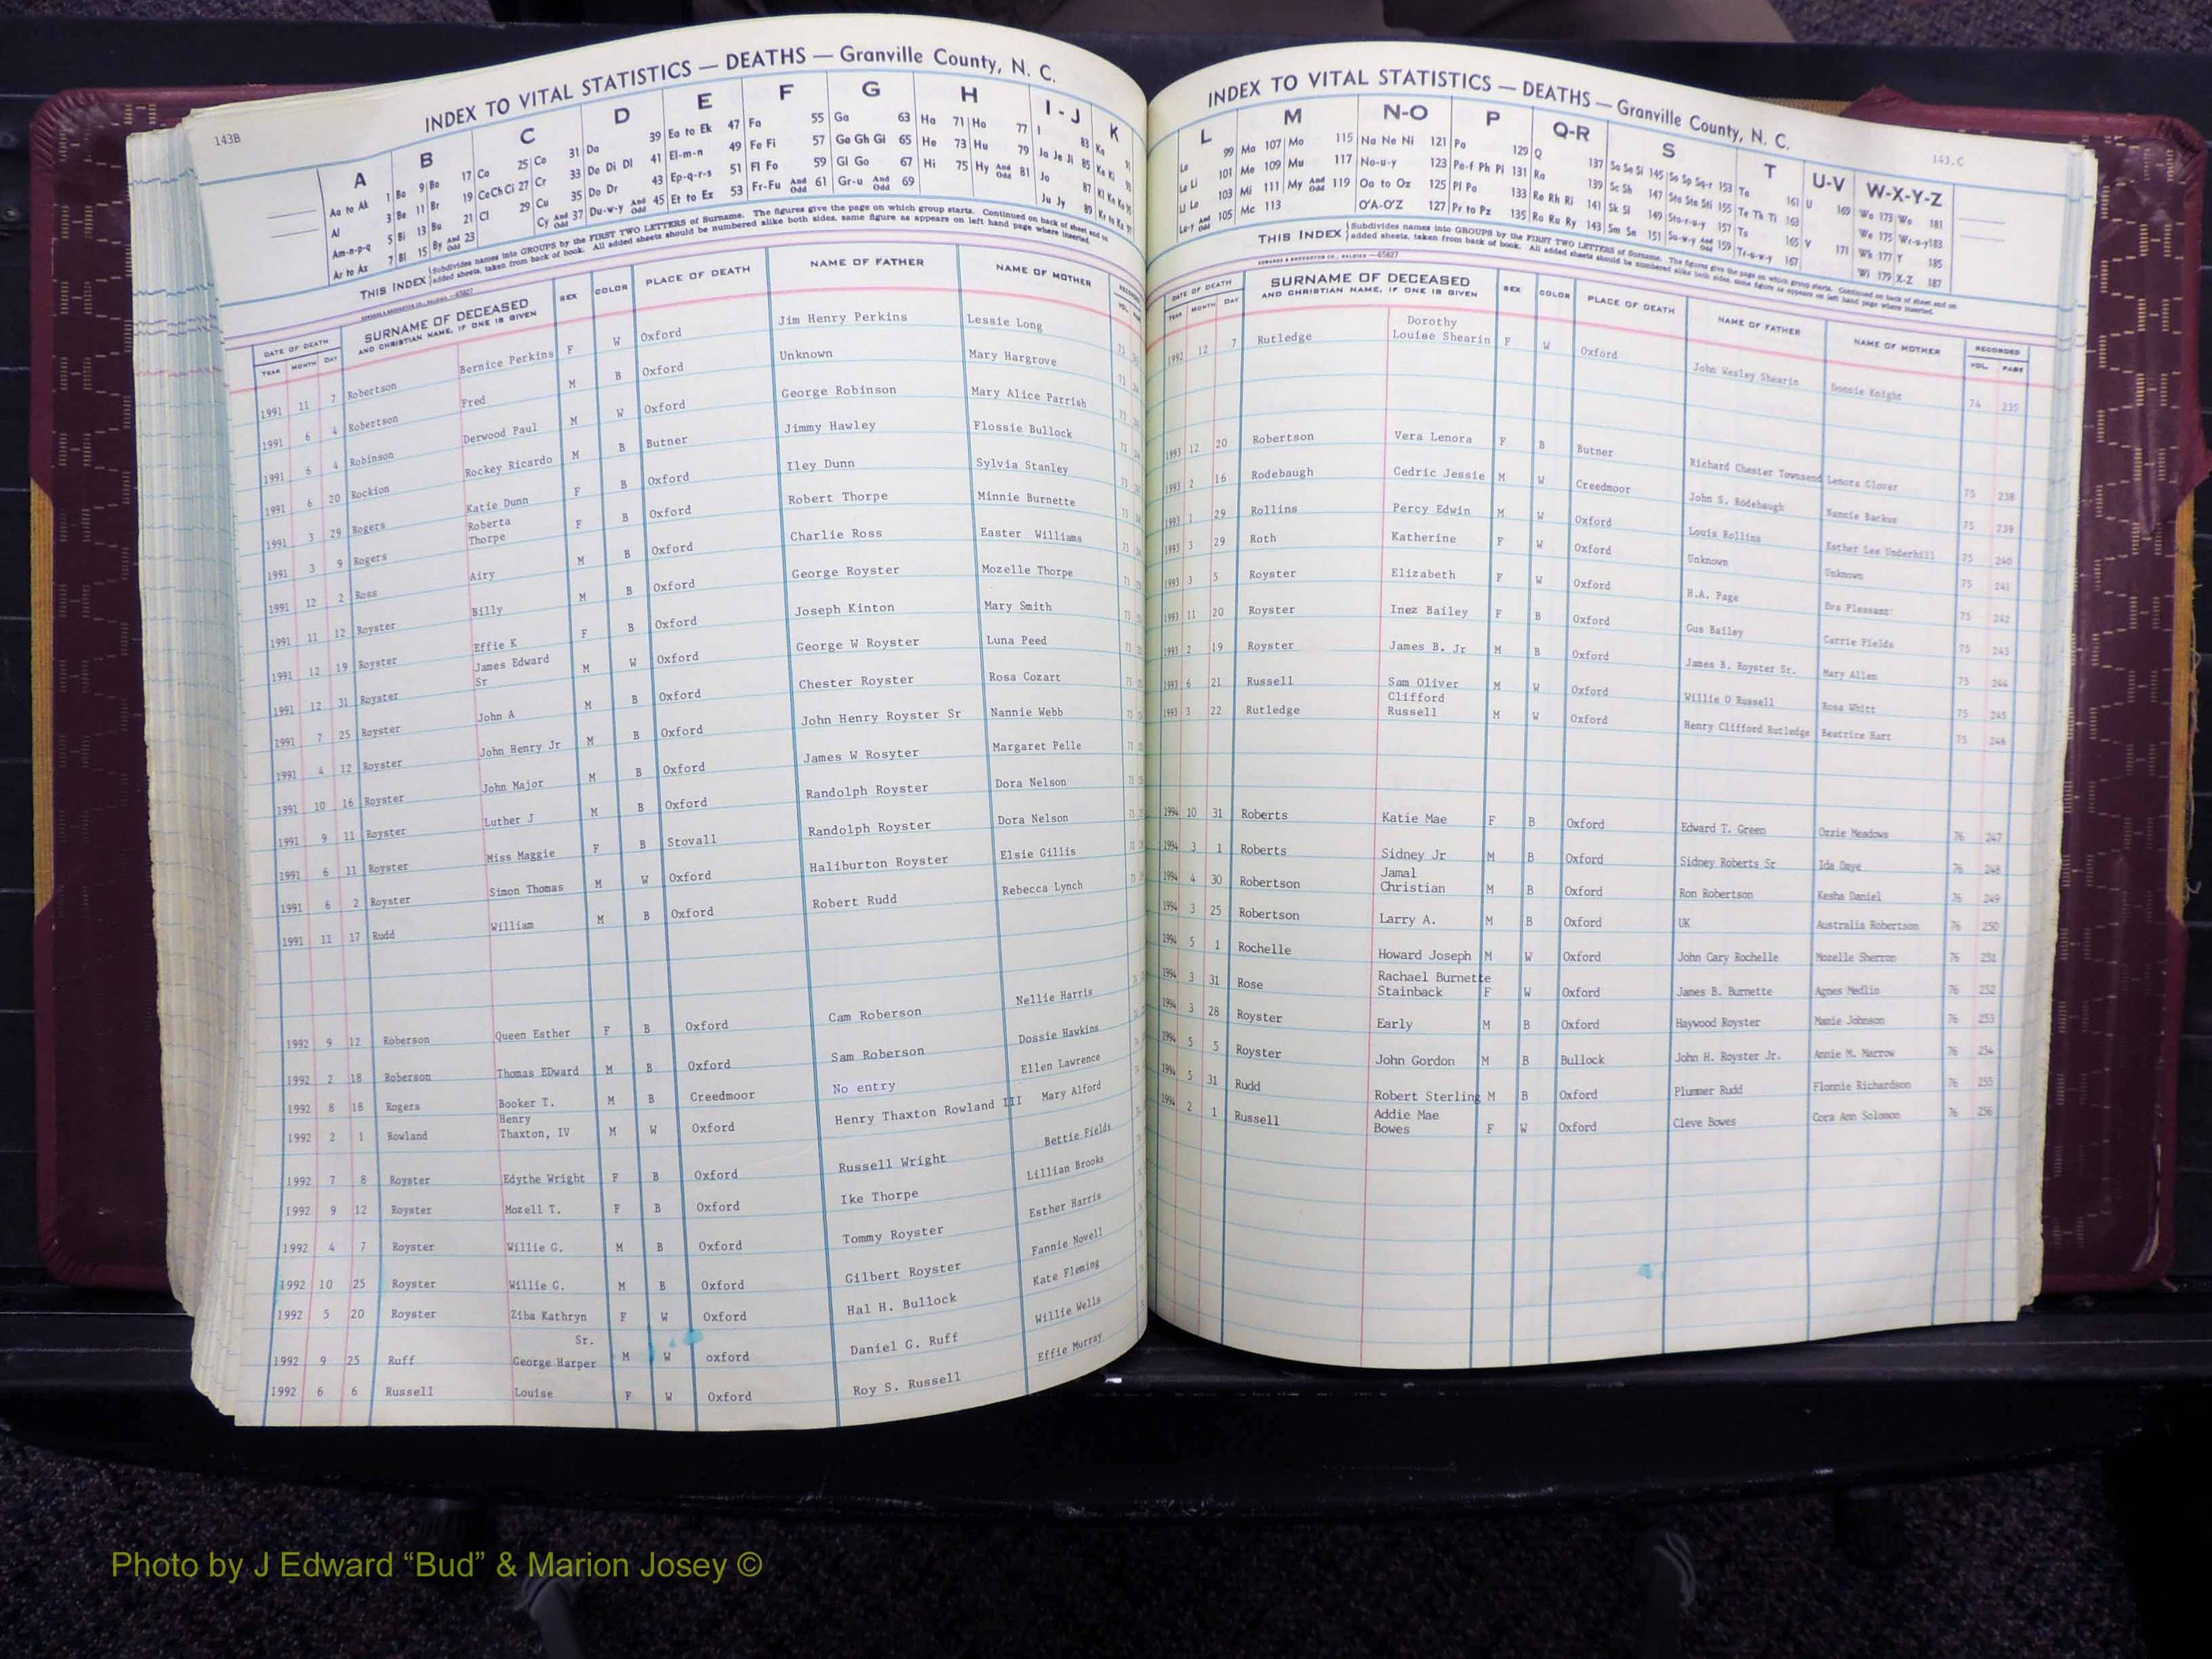 143B
INDEX TO VITAL STATISTICS — DEATHS — Granville County, N. C.
A B C D E F G H I - J K
Aa to Ak 1 Ba 9 Bo 17 Ca 25 Co 31 Da 39 Ea to Ek 47 Fa 55 Ga 63 Ha 71 Ho 77 I 83 Ka 91
Al 3 Be 11 Br 19 Ce Ch Ci 27 Cr 33 De Di Dl 41 El-m-n 49 Fe Fi 57 Ge Gh Gi 65 He 73 Hu 79 Ja Je Ji 85 Ke Ki 93
Am-n-p-q 5 Bi 13 Bu 21 Cl 29 Cu 35 Do Dr 43 Ep-q-r-s 51 Fl Fo 59 Gl Go 67 Hi 75 Hy And Odd 81 Jo 87
Ar to Az 7 Bl 15 By And Odd 23 Cy And Odd 37 Du-w-y And Odd 45 Et to Ez 53 Fr-Fu And Odd 61 Gr-u And Odd 69 Ju Jy 89
THIS INDEX Subdivides names into GROUPS by the FIRST TWO LETTERS of Surname. The figures give the page on which group starts. Continued on back of sheet and on
added sheets, taken from back of book. All added sheets should be numbered alike both sides, same figure as appears on left hand page where inserted.
DATE OF DEATH YEAR MONTH DAY SURNAME OF DECEASED AND CHRISTIAN NAME, IF ONE IS GIVEN SEX COLOR PLACE OF DEATH NAME OF FATHER NAME OF MOTHER
1991 11 7 Robertson Bernice Perkins F W Oxford Jim Henry Perkins Lessie Long 73
1991 6 4 Robertson Fred M B Oxford Unknown Mary Hargrove 73
1991 6 4 Robinson Derwood Paul M W Oxford George Robinson Mary Alice Parrish 73
1991 6 20 Rockion Rockey Ricardo M B Butner Jimmy Hawley Flossie Bullock 73
1991 3 29 Rogers Katie Dunn F B Oxford Iley Dunn Sylvia Stanley 73
1991 3 9 Rogers Roberta Thorpe F B Oxford Robert Thorpe Minnie Burnette 73
1991 12 2 Ross Airy M B Oxford Charlie Ross Easter Williams 73
1991 11 12 Royster Billy M B Oxford George Royster Mozelle Thorpe 73
1991 12 19 Royster Effie K F B Oxford Joseph Kinton Mary Smith 73
1991 12 31 Royster James Edward Sr M W Oxford George W Royster Luna Peed 73
1991 7 25 Royster John A M B Oxford Chester Royster Rosa Cozart 73
1991 4 12 Royster John Henry Jr M B Oxford John Henry Royster Sr Nannie Webb 73
1991 10 16 Royster John Major M B Oxford James W Rosyter Margaret Pelle 73
1991 9 11 Royster Luther J M B Oxford Randolph Royster Dora Nelson 73
1991 6 11 Royster Miss Maggie F B Stovall Randolph Royster Dora Nelson 73
1991 6 2 Royster Simon Thomas M W Oxford Haliburton Royster Elsie Gillis 73
1991 11 17 Rudd William M B Oxford Robert Rudd Rebecca Lynch
1992 9 12 Roberson Queen Esther F B Oxford Cam Roberson Nellie Harris
1992 2 18 Roberson Thomas EDward M B Oxford Sam Roberson Dossie Hawkins
1992 8 18 Rogers Booker T. M B Creedmoor No entry Ellen Lawrence
1992 2 1 Rowland Henry Thaxton, IV M W Oxford Henry Thaxton Rowland III Mary Alford
1992 7 8 Royster Edythe Wright F B Oxford Russell Wright Bettie Fields
1992 9 12 Royster Mozell T. F B Oxford Ike Thorpe Lillian Brooks
1992 4 7 Royster Willie G. M B Oxford Tommy Royster Esther Harris
1992 10 25 Royster Willie G. M B Oxford Gilbert Royster Fannie Novell
1992 5 20 Royster Ziba Kathryn F W Oxford Hal H. Bullock Kate Fleming
1992 9 25 Ruff Sr. George Harper M W oxford Daniel G. Ruff Willie Wells
1992 6 6 Russell Louise F W Oxford Roy S. Russell Effie Murray
143.C
INDEX TO VITAL STATISTICS — DEATHS — Granville County, N. C.
L M N-O P Q-R S T U-V W-X-Y-Z
La 99 Ma 107 Mo 115 Na Ne Ni 121 Pa 129 Q 137 Sa Se Si 145 So Sp Sq-r 153 Ta 161 U 169 Wa 173 Wo 181
Le Li 101 Me 109 Mu 117 No-u-y 123 Pe-f Ph Pi 131 Ra 139 Sc Sh 147 Sta Ste Sti 155 Te Th Ti 163 We 175 Wr-u-y 183
Ll Lo 103 Mi 111 My And Odd 119 Oa to Oz 125 Pl Po 133 Re Rh Ri 141 Sk Sl 149 Sto-r-u-y 157 To 165 V 171 Wh 177 Y 185
Lu-y And Odd 105 Mc 113 O'A-O'Z 127 Pr to Pz 135 Ro Ru Ry 143 Sm Sn 151 Su-w-y And Odd 159 Tr-u-w-y 167 Wi 179 X-Z 187
THIS INDEX Subdivides names into GROUPS by the FIRST TWO LETTERS of Surname. The figures give the page on which group starts. Continued on back of sheet and on
added sheets, taken from back of book. All added sheets should be numbered alike both sides, same figure as appears on left hand page where inserted.
EDWARDS & BROUGHTON CO., RALEIGH —65827
DATE OF DEATH YEAR MONTH DAY SURNAME OF DECEASED AND CHRISTIAN NAME, IF ONE IS GIVEN SEX COLOR PLACE OF DEATH NAME OF FATHER NAME OF MOTHER RECORDED VOL. PAGE
1992 12 7 Rutledge Dorothy Louise Shearin F W Oxford John Wesley Shearin Donnie Knight 74 235
1993 12 20 Robertson Vera Lenora F B Butner Richard Chester Townsend Lenora Glover 75 238
1993 2 16 Rodebaugh Cedric Jessie M W Creedmoor John S. Rodebaugh Nannie Backus 75 239
1993 1 29 Rollins Percy Edwin M W Oxford Louis Rollins Esther Lee Underhill 75 240
1993 3 29 Roth Katherine F W Oxford Unknown Unknown 75 241
1993 3 5 Royster Elizabeth F W Oxford H.A. Page Eva Pleasant 75 242
1993 11 20 Royster Inez Bailey F B Oxford Gus Bailey Carrie Fields 75 243
1993 2 19 Royster James B. Jr M B Oxford James B. Royster Sr. Mary Allen 75 244
1993 6 21 Russell Sam Oliver M W Oxford Willie O Russell Rosa Whitt 75 245
1993 3 22 Rutledge Clifford Russell M W Oxford Henry Clifford Rutledge Beatrice Hart 75 246
1994 10 31 Roberts Katie Mae F B Oxford Edward T. Green Ozzie Meadows 76 247
1994 3 1 Roberts Sidney Jr M B Oxford Sidney Roberts Sr Ida Daye 76 248
1994 4 30 Robertson Jamal Christian M B Oxford Ron Robertson Kesha Daniel 76 249
1994 3 25 Robertson Larry A. M B Oxford UK Australia Robertson 76 250
1994 5 1 Rochelle Howard Joseph M W Oxford John Cary Rochelle Mozelle Sherron 76 251
1994 3 31 Rose Rachael Burnette Stainback F W Oxford James B. Burnette Agnes Medlin 76 252
1994 3 28 Royster Early M B Oxford Haywood Royster Mamie Johnson 76 253
1994 5 5 Royster John Gordon M B Bullock John H. Royster Jr. Annie M. Marrow 76 254
1994 5 31 Rudd Robert Sterling M B Oxford Plummer Rudd Flonnie Richardson 76 255
1994 2 1 Russell Addie Mae Bowes F W Oxford Cleve Bowes Cora Ann Solomon 76 256
Photo by J Edward “Bud” & Marion Josey ©